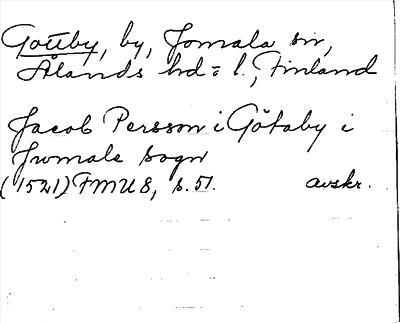 Gottby, by, Jomala sn,
Ålands hd = l., Finland
Jacob Persson i Götaby i
Jwmale sogn
(1521) FMU 8, s. 51. avskr.